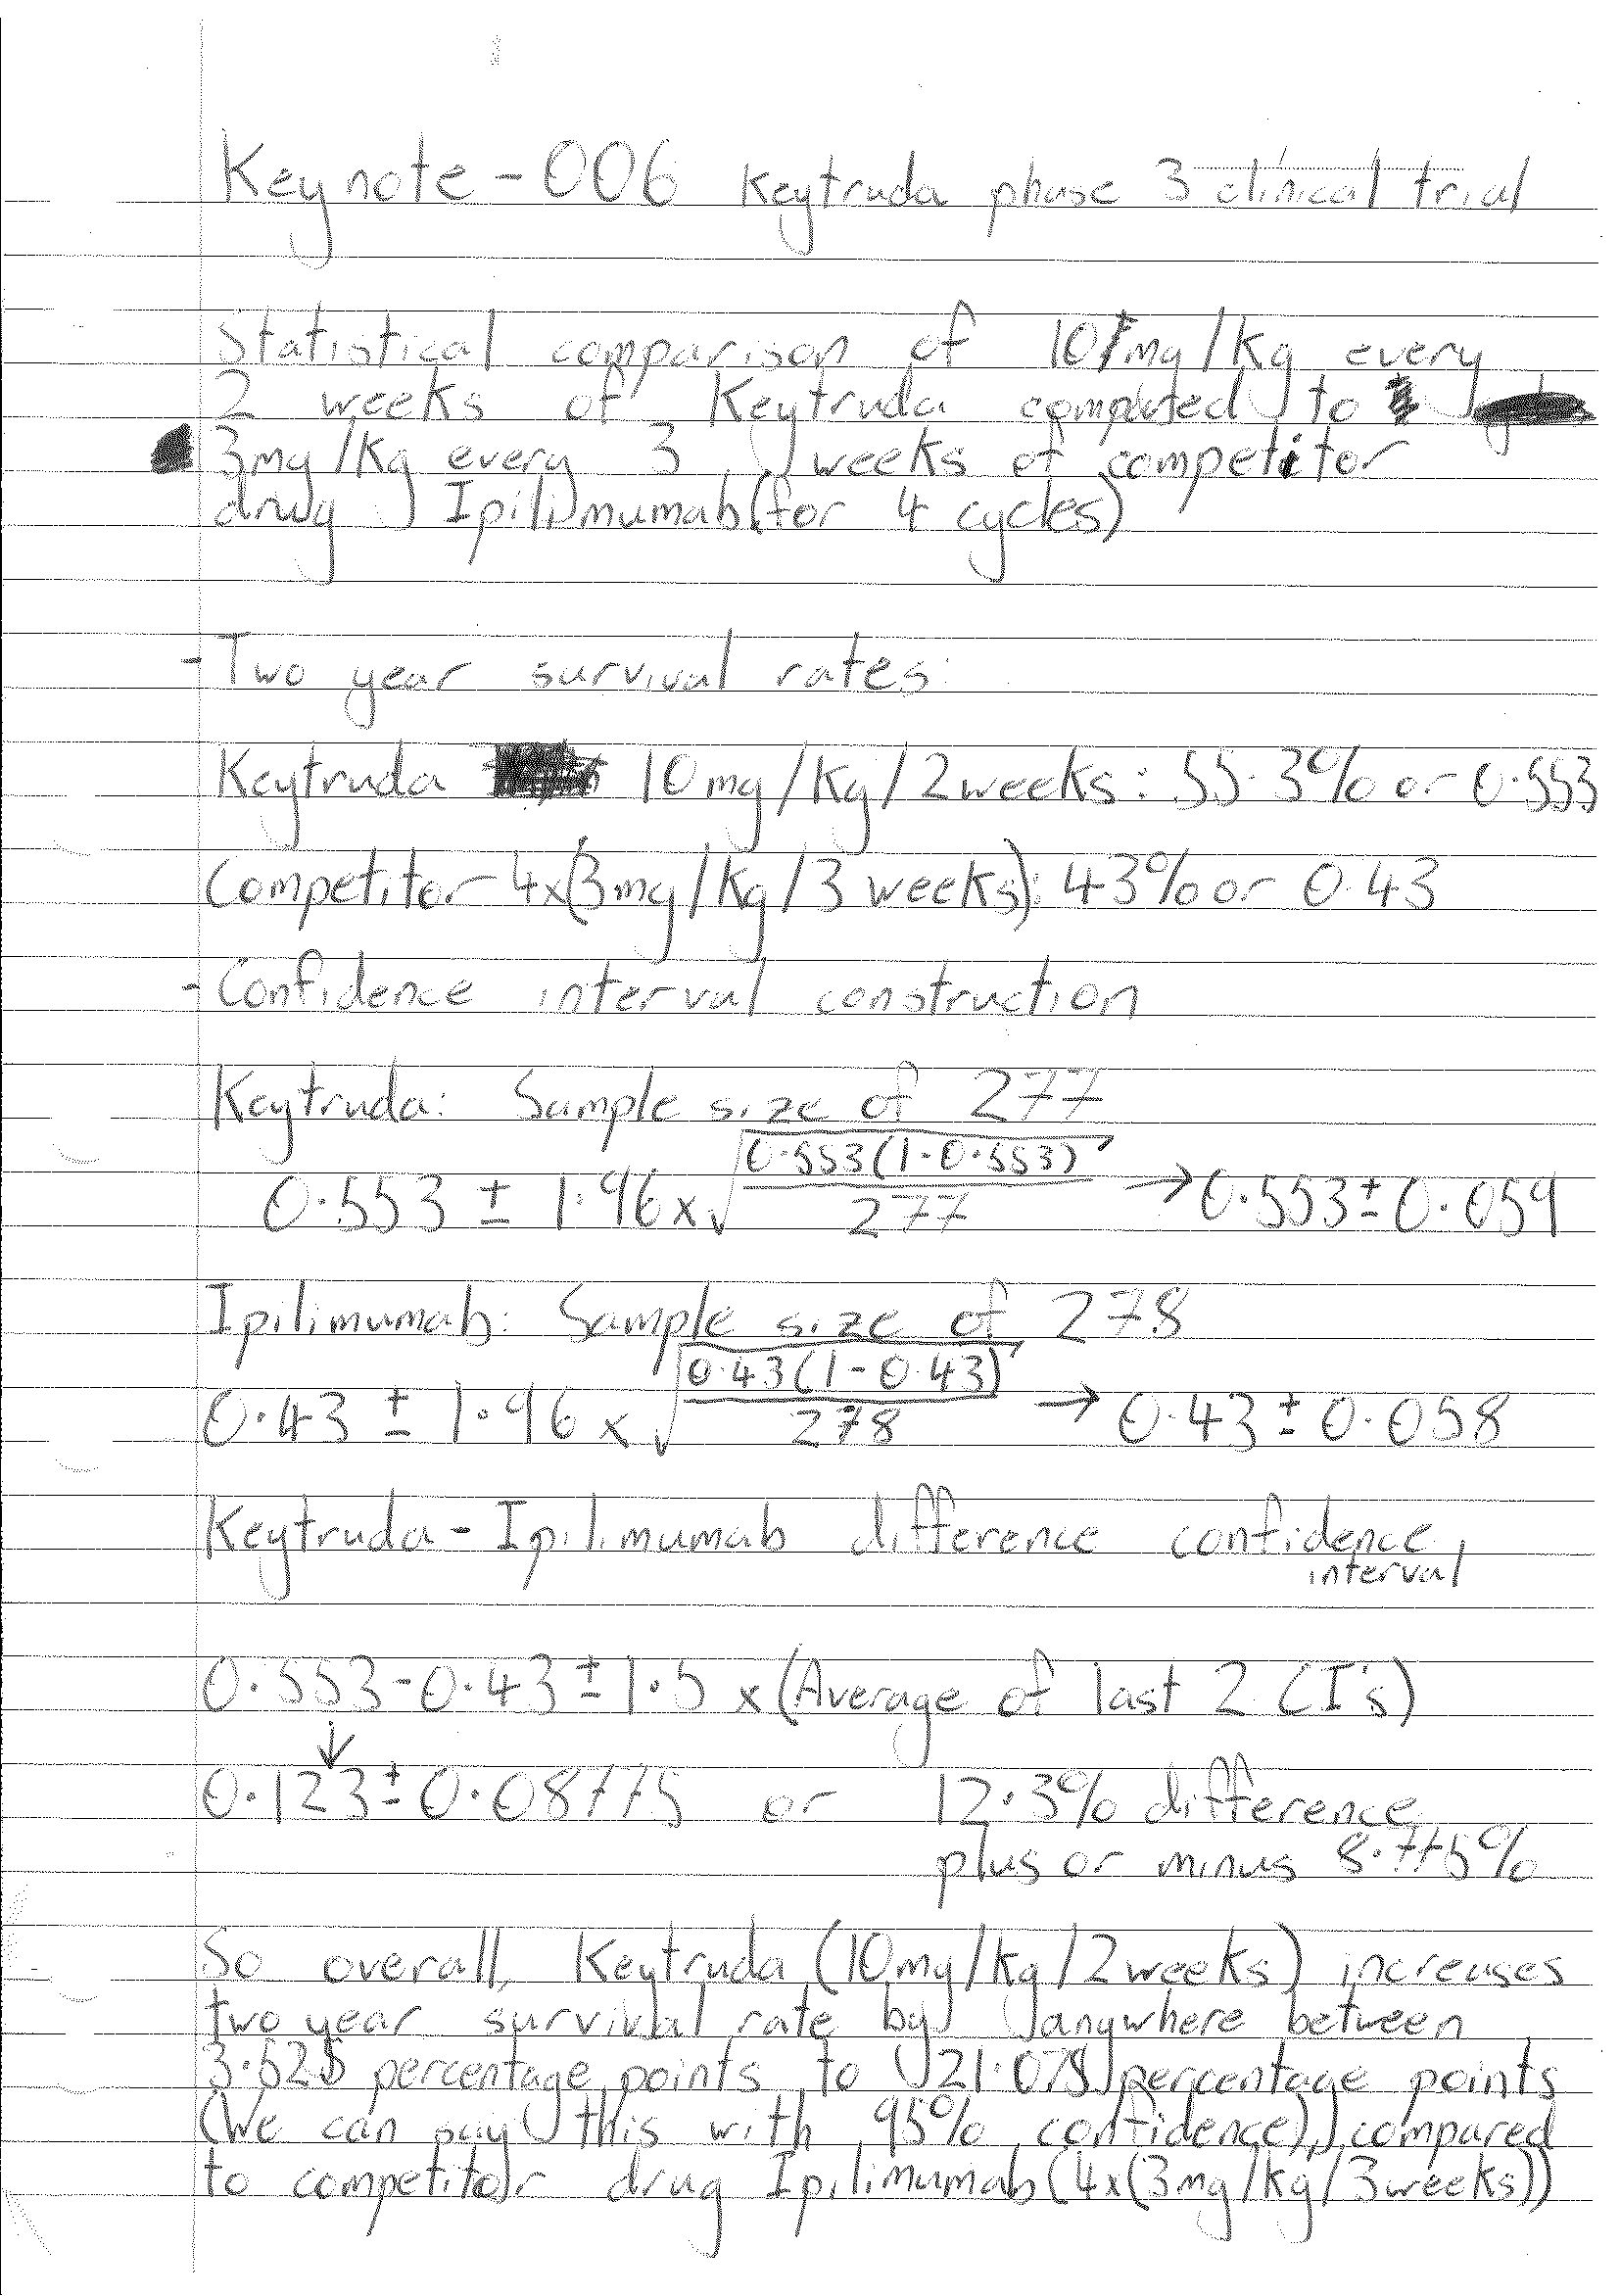 Keynote-006 Keytruda phase 3 clinical trial
Statistical comparison of 10mg/kg every
2 weeks of Keytruda compared to
3mg/kg every 3 weeks of competitor
drug Ipilimumab (for 4 cycles)
- Two year survival rates:
Keytruda 10mg/kg/2weeks: 55.3% or 0.553
Competitor 4x(3mg/kg/3 weeks): 43% or 0.43
- Confidence interval construction
Keytruda: Sample size of 277
0.553 ± 1.96 x √(0.553(1-0.553)/277) → 0.553 ± 0.059
Ipilimumab: Sample size of 278
0.43 ± 1.96 x √(0.43(1-0.43)/278) → 0.43 ± 0.058
Keytruda - Ipilimumab difference confidence
interval
0.553-0.43 ± 1.5 x (Average of last 2 CI's)
↓
0.123 ± 0.08775 or 12.3% difference
plus or minus 8.775%
So overall, Keytruda (10mg/kg/2weeks) increases
two year survival rate by anywhere between
3.525 percentage points to 21.075 percentage points
(We can say this with 95% confidence), compared
to competitor drug Ipilimumab (4x(3mg/kg/3weeks))